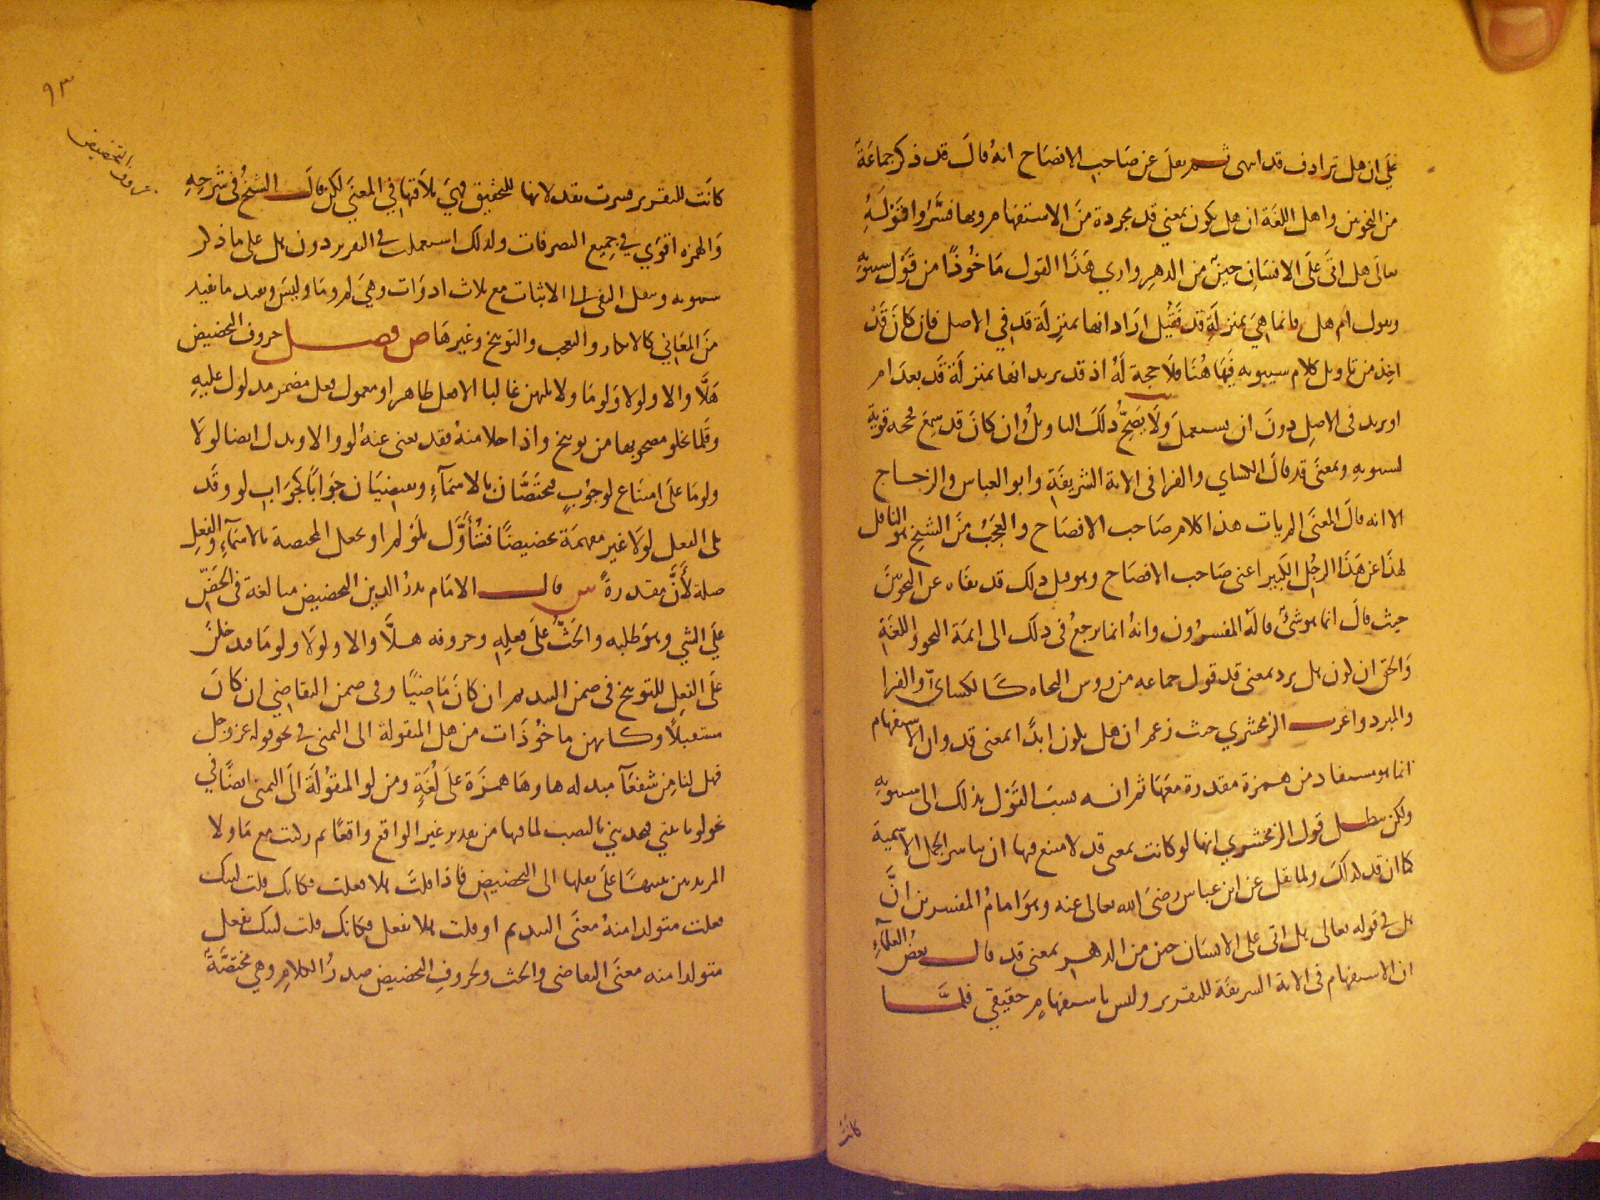 علي ان هل ترادف قد انتهى ثم نقل عن صاحب الافصاح انه قال قد ذكر جماعة
من النحويين واهل اللغة ان هل يكون بمعني قد مجردة من الاستفهام وربما فسروا قوله
تعالى هل اتى على الانسان حين من الدهر واري هذا القول ماخوذا من قول سيبويه
وتقول ام هل فانما هي بمنزلة قد فقيل اراد انها بمنزلة قد في الاصل فان كان قد
اخذ من تاويل كلام سيبويه فهاهنا فلا حجة له اذ قد يريد انها بمنزلة قد بعد ام
او يريد في الاصل دون ان يستعمل ولا يصح ذلك التاويل وان كان قد سمع فحجة قوية
لسيبويه وبمعنى قد قال الكساي والفرا في الاية الشريفة وابو العباس والزجاج
الا انه قال المعنى الم يات هذا كلام صاحب الافصاح والعجب من الشيخ هو الناقل
لهذا عن هذا الرجل الكبير اعنى صاحب الافصاح وهو قبل ذلك قد نفاه عن النحويين
حيث قال انما هو شئ قاله المفسرون وانه انما يرجع في ذلك الى ايمة النحو واللغة
والحق ان كون هل يرد بمعنى قد قول جماعه من روس النحاه كالكسائي والفرا
والمبرد واغرب الزمخشري حيث زعم ان هل يكون ابدًا بمعنى قد وان الاستفهام
انما هو مستفاد من همزة مقدرة معها ثم انه نسب القول بذلك الى سيبويه
ولكن يبطل قول الزمخشري انها لو كانت بمعنى قد لامتنع فيها ان تباشر الجمل الاسمية
كما ان قد كذلك ولما نقل عن ابن عباس رضى الله تعالى عنه وهو امام المفسرين ان
هل في قوله تعالى هل اتى على الانسان حين من الدهر بمعنى قد قال بعض العلماء
ان الاستفهام في الاية الشريفة للتقرير وليس باستفهام حقيقي فلما
كانت
٩٣
حروف التحضيض
كانت للتقرير فسرت بقد لانها للتحقيق فهي تلاقها في المعنى لكن قال الشيخ في شرحه
والهمزه اقوي في جميع التصرفات ولذلك استعملت في التقرير دون هل على ما ذكر
سيبويه ونقل النفي الى الاثبات مع ثلاث ادوات وهي لم وما وليس وبعد ما تفيد
من المعاني كالانكار والتعجب والتوبيخ وغيرها ص فصل حروف التحضيض
هلا والا ولولا ولوما ولا يليهن غالبا الا فعل ظاهر او معمول فعل مضمر مدلول عليه
وقلما يخلو مصحوبها من توبيخ واذا خلا منه فقد يغنى عنهن لو والا ويدل ايضا لولا
ولوما على امتناع لوجوب مختصتان بالاسماء ويقتضيان جوابًا كجواب لو وقد
يلى الفعل لولا غير مفهمة تحضيضًا فتأول بلو لم او يجعل المختصة بالاسماء والفعل
صلة لأن مقدرة ش قال الامام بدر الدين التحضيض مبالغة في الحض
علي الشي وهو طلبه والحث على فعله وحروفه هلا والا ولولا ولوما فيدخلن
على الفعل للتوبيخ في ضمن التنديم ان كان ماضيًا وفي ضمن التقاضي ان كان
مستقبلًا وكانهن ماخوذات من هل المنقولة الى التمنى في نحو قوله عز وجل
فهل لنا من شفعآ مبدله هاوها همزة على لغة ومن لو المنقولة الى التمنى ايضًا في
نحو لو تاتيني فتحدثني بالنصب لما فيها من تقدير غير الواقع واقعًا ثم ركبت مع ما ولا
المزيدتين تنبيهًا على نقلها الى التحضيض فاذا قلت هلا فعلت فكانك قلت ليتك
فعلت متولدا منه معنى التنديم او قلت هلا تفعل فكانك قلت ليتك تفعل
متولدا منه معنى التقاضى والحث ولحروف التحضيض صدر الكلام وهي مختصة